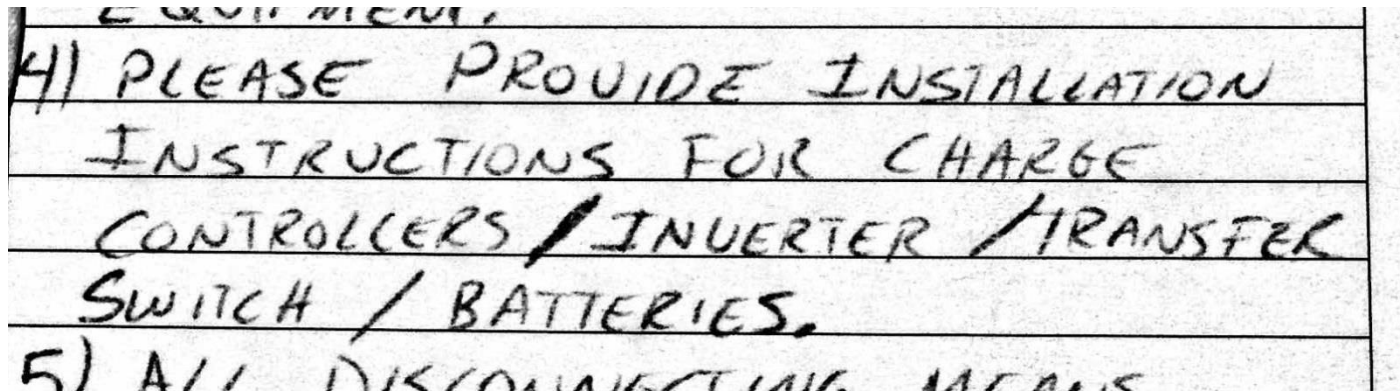 EQUIPMENT.
4) PLEASE PROVIDE INSTALLATION
INSTRUCTIONS FOR CHARGE
CONTROLLERS / INVERTER / TRANSFER
SWITCH / BATTERIES.
5) ALL DISCONNECTING MEANS